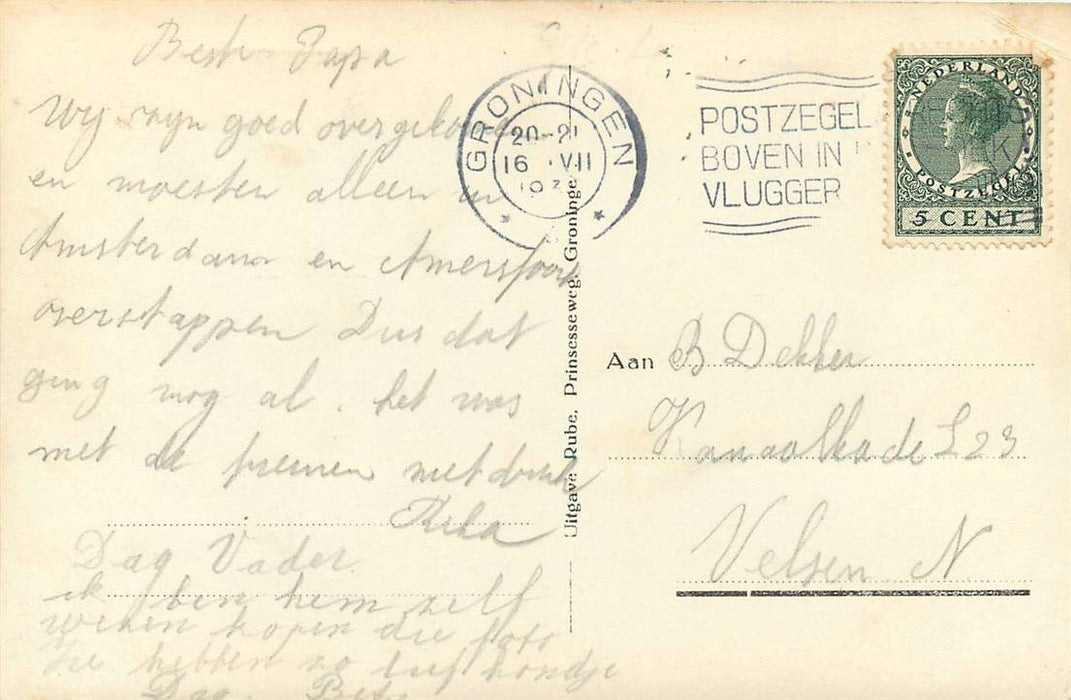 Beste Papa
Wij zijn goed overgekomen
en moesten alleen in
Amsterdam en Amersfoort
overstappen Dus dat
ging nog al. het was
met de treinen niet druk
Dag Vader
ik ben hem zelf
wezen kopen die foto
Ze hebben zo lief hondje
Dag Bets
Uitgave Rube, Prinsesseweg, Groningen
GRONINGEN
20-21
16 VII
POSTZEGEL
BOVEN IN
VLUGGER
NEDERLAND
POSTZEGEL
5 CENT
Aan B Dekker
Kanaalkade 123
Velsen N.